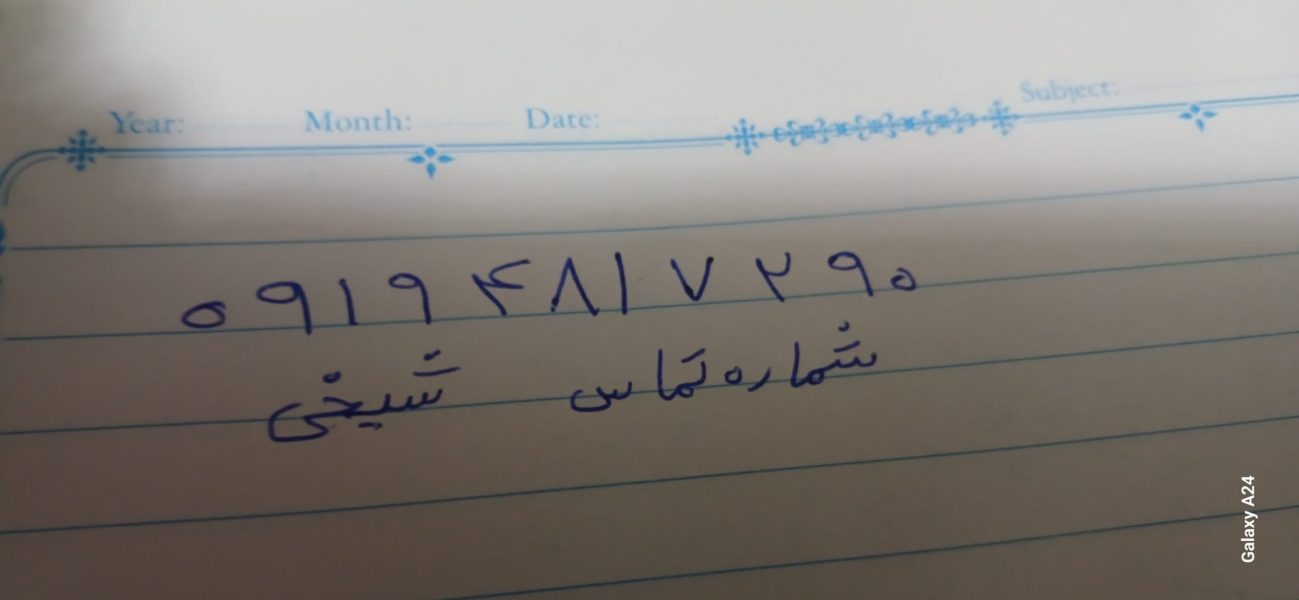 Year: Month: Date: Subject:
۰۹۱۹۴۸۱۷۲۹۰
شماره تماس شیخی
Galaxy A24